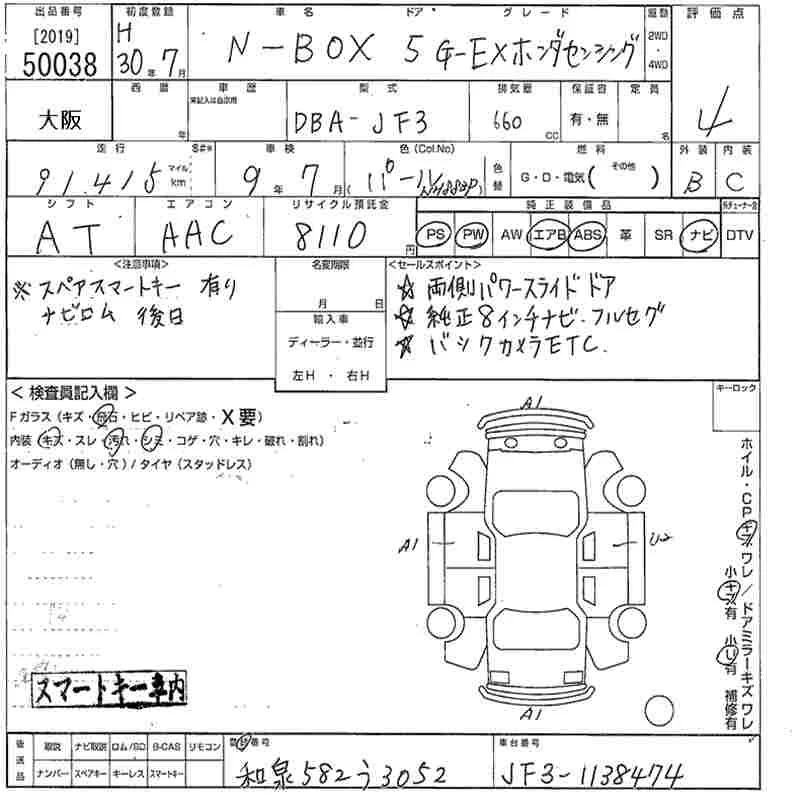 出品番号 初度登録 車名 ドア・ グレード 駆動 評価点
[2019] 50038 H 30年 7月 N-BOX 5 G-EXホンダセンシング 2WD・4WD 4
大阪 西暦 年 車歴 未記入は自家用 型式 排気量 保証書 定員
DBA-JF3 660 CC 有・無 名
走行 S#* 車検 色(Col.No) 燃料 外装 内装
91,415 マイル km 9年 7月 (パール NH883P) 色替 G・D・電気( その他 ) B C
シフト エアコン リサイクル預託金 純正装備品
AT AAC 8110円 PS PW AW エアB ABS 革 SR ナビ DTV
<注意事項> 名変期限 <セールスポイント>
※ スペアスマートキー 有り ☆ 両側パワースライドドア
ナビロム 後日 月 日 ☆ 純正8インチナビ・フルセグ
輸入車 ☆ バックカメラETC.
ディーラー・並行
左H ・ 右H
< 検査員記入欄 > キーロック
Fガラス (キズ・飛石・ヒビ・リペア跡・X要)
内装 (キズ・スレ・汚れ・シミ・コゲ・穴・キレ・破れ・割れ)
オーディオ (無し・穴) / タイヤ (スタッドレス)
A1
A1 U2
A1
ホイル・CPキズワレ/ドアミラーキズワレ
小キズ有 小U有 補修有
スマートキー車内
後送品 取説 ナビ取説 ロム/SD B-CAS リモコン 登録番号 車台番号
ナンバー スペアキー キーレス スマートキー 和泉 582 う 3052 JF3-1138474